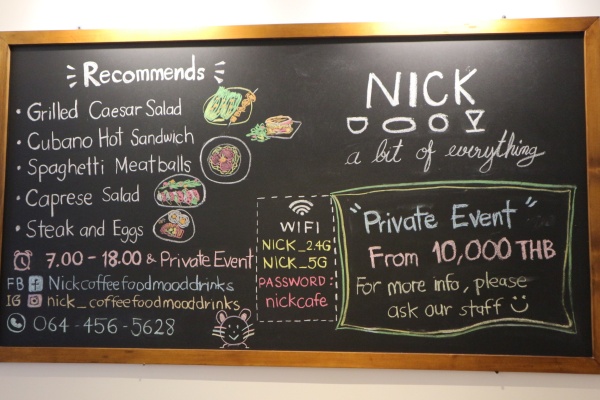 Recommends
• Grilled Caesar Salad
• Cubano Hot Sandwich
• Spaghetti Meatballs
• Caprese Salad
• Steak and Eggs
7.00 - 18.00 & Private Event
FB Nickcoffeefoodmooddrinks
IG nick_coffeefoodmooddrinks
064-456-5628
WIFI
NICK_2.4G
NICK_5G
PASSWORD:
nickcafe
NICK
a bit of everything
"Private Event"
From 10,000 THB
For more info, please
ask our staff